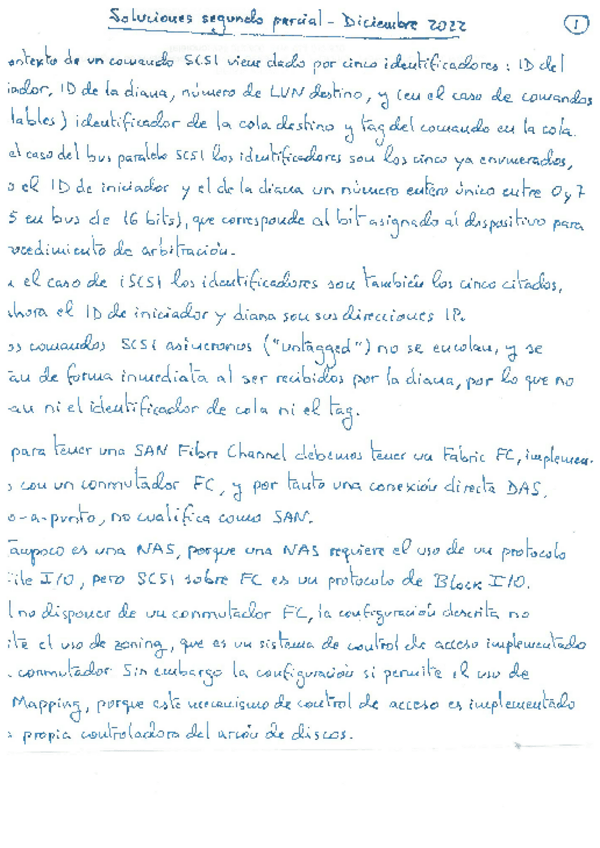 Soluciones segundo parcial - Diciembre 2022 1
ontexto de un comando SCSI viene dado por cinco identificadores: ID del
iador, ID de la diana, número de LUN destino, y (en el caso de comandos
lables) identificador de la cola destino y tag del comando en la cola.
el caso del bus paralelo SCSI los identificadores son los cinco ya enumerados,
o el ID de iniciador y el de la diana un número entero único entre 0 y 7
5 en bus de 16 bits), que corresponde al bit asignado al dispositivo para
ocedimiento de arbitración.
el caso de iSCSI los identificadores son también los cinco citados,
hora el ID de iniciador y diana son sus direcciones IP.
os comandos SCSI asíncronos ("untagged") no se encolan, y se
an de forma inmediata al ser recibidos por la diana, por lo que no
an ni el identificador de cola ni el tag.
para tener una SAN Fibre Channel debemos tener un Fabric FC, implemen-
o con un conmutador FC, y por tanto una conexión directa DAS,
o-a-punto, no cualifica como SAN.
ampoco es una NAS, porque una NAS requiere el uso de un protocolo
ile I/O, pero SCSI sobre FC es un protocolo de Block I/O.
l no disponer de un conmutador FC, la configuración descrita no
ite el uso de zoning, que es un sistema de control de acceso implementado
conmutador. Sin embargo la configuración si permite el uso de
Mapping, porque este mecanismo de control de acceso es implementado
propia controladora del arión de discos.